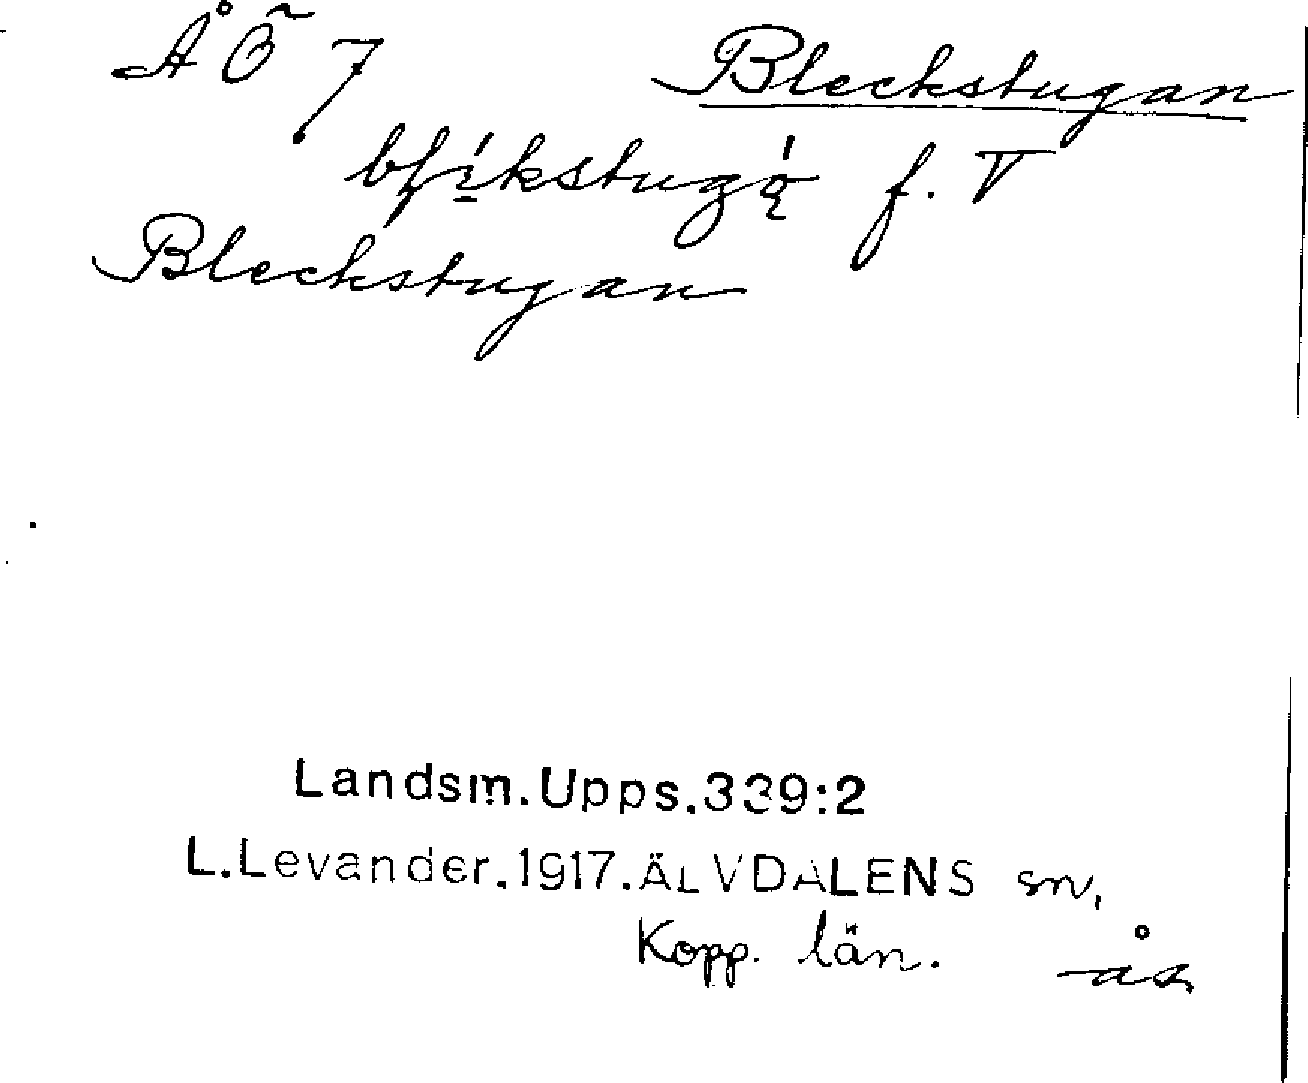 ÅÖ 7 Bleckstugan
f. V
Bleckstugan
Landsm.Upps.339:2
L.Levander.1917.ÄLVDALENS sn,
Kopp. län. ås